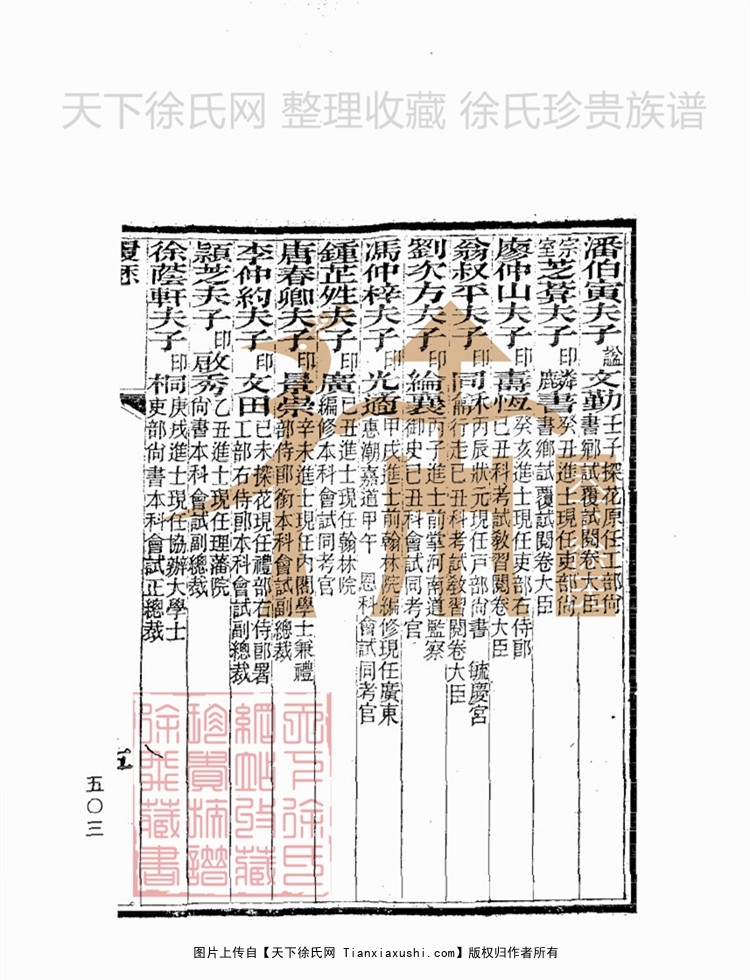 天下徐氏网 整理收藏 徐氏珍贵族谱
潘伯寅夫子諡文勤壬子探花原任工部尙書鄉試覆試閱卷大臣
宗室芝葊夫子印麟書癸丑進士現任吏部尙書鄉試覆試閱卷大臣
廖仲山夫子印壽恆癸亥進士現任吏部右侍郎己丑科考試敎習閱卷大臣
翁叔平夫子印同龢丙辰狀元現任戶部尙書 毓慶宮行走己丑科考試敎習閱卷大臣
劉次方夫子印綸襄丙子進士前掌河南道監察御史己丑科會試同考官
馮仲梓夫子印光遹甲戌進士前翰林院編修現任廣東惠潮嘉道甲午 恩科會試同考官
鍾芷姓夫子印廣己丑進士現任翰林院編修本科會試同考官
唐春卿夫子印景崇辛未進士現任內閣學士兼禮部侍郎銜本科會試副總裁
李仲約夫子印文田己未探花現任禮部右侍郎署工部右侍郎本科會試副總裁
穎芝夫子印啟秀乙丑進士現任理藩院尙書本科會試副總裁
徐蔭軒夫子印桐庚戌進士現任協辦大學士吏部尙書本科會試正總裁
履歷
五〇三
天下徐氏
網站收藏
珍貴族譜
徐氏藏書
图片上传自【天下徐氏网 Tianxiaxushi.com】版权归作者所有